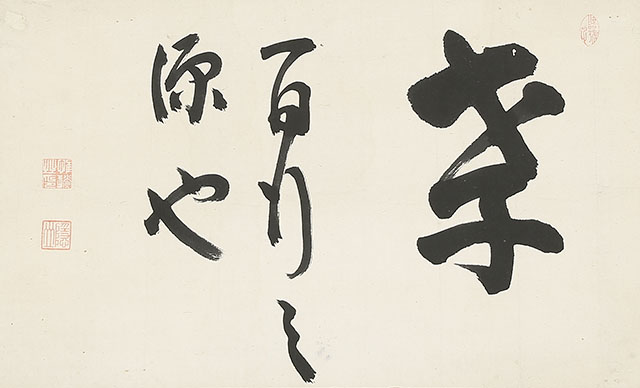 孝
百行之
源也